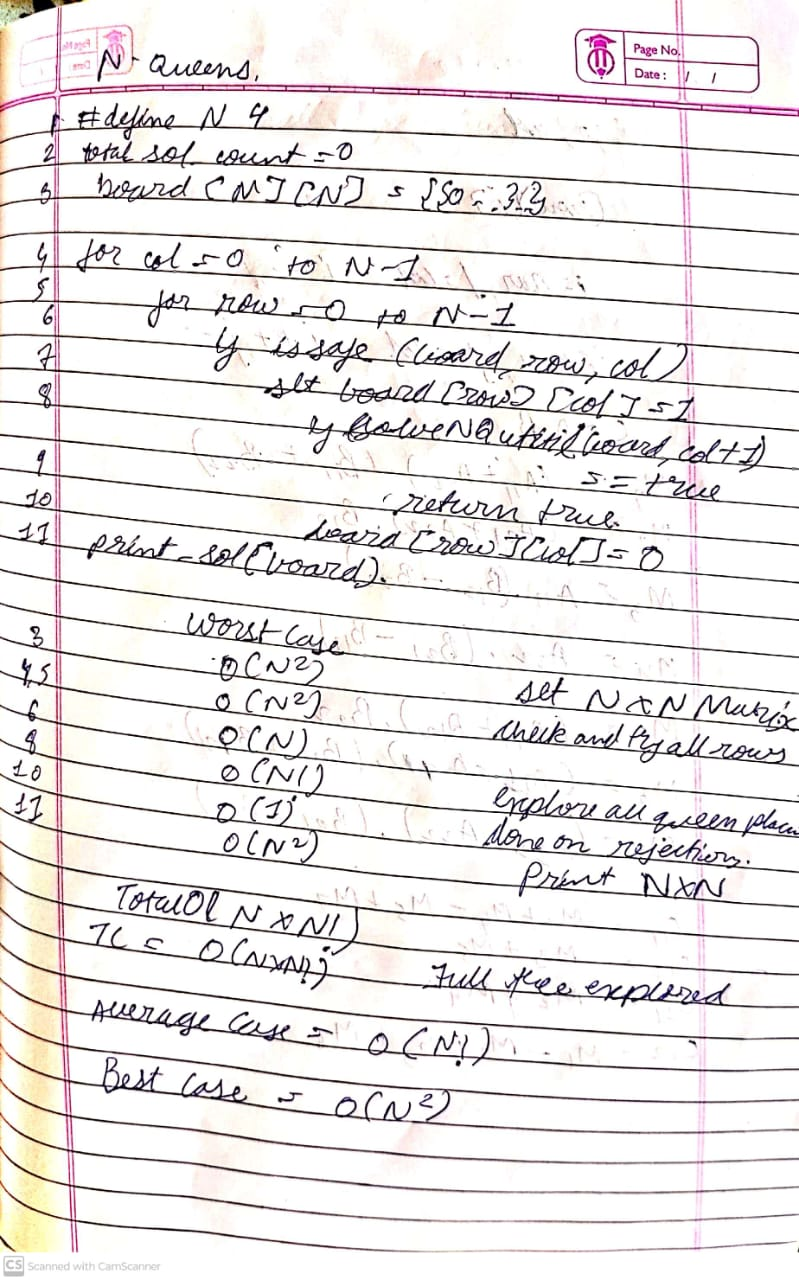 Page No.
Date : / /
N- Queens.
1 #define N 4
2 total sol count = 0
3 board [N][N] = {{0 - }}
4 for col = 0 to N-1
5 for row = 0 to N-1
6 if issafe (board, row, col)
7 set board [row] [col] = 1
8 if solveNQutil(board, col+1)
== true
9 return true.
10 board [row][col] = 0
11 print-sol(board).
Worst Case
3 O(N2) set NxN Matrix
4,5 O(N2) Check and try all rows
6 O(N)
8 O(N!) explore all queen placem
10 O(1) done on rejection.
11 O(N2) Print NXN
Total O( N x N!)
TC = O(NxN!) Full tree explored
Average Case = O(N!)
Best Case = O(N2)
CS Scanned with CamScanner